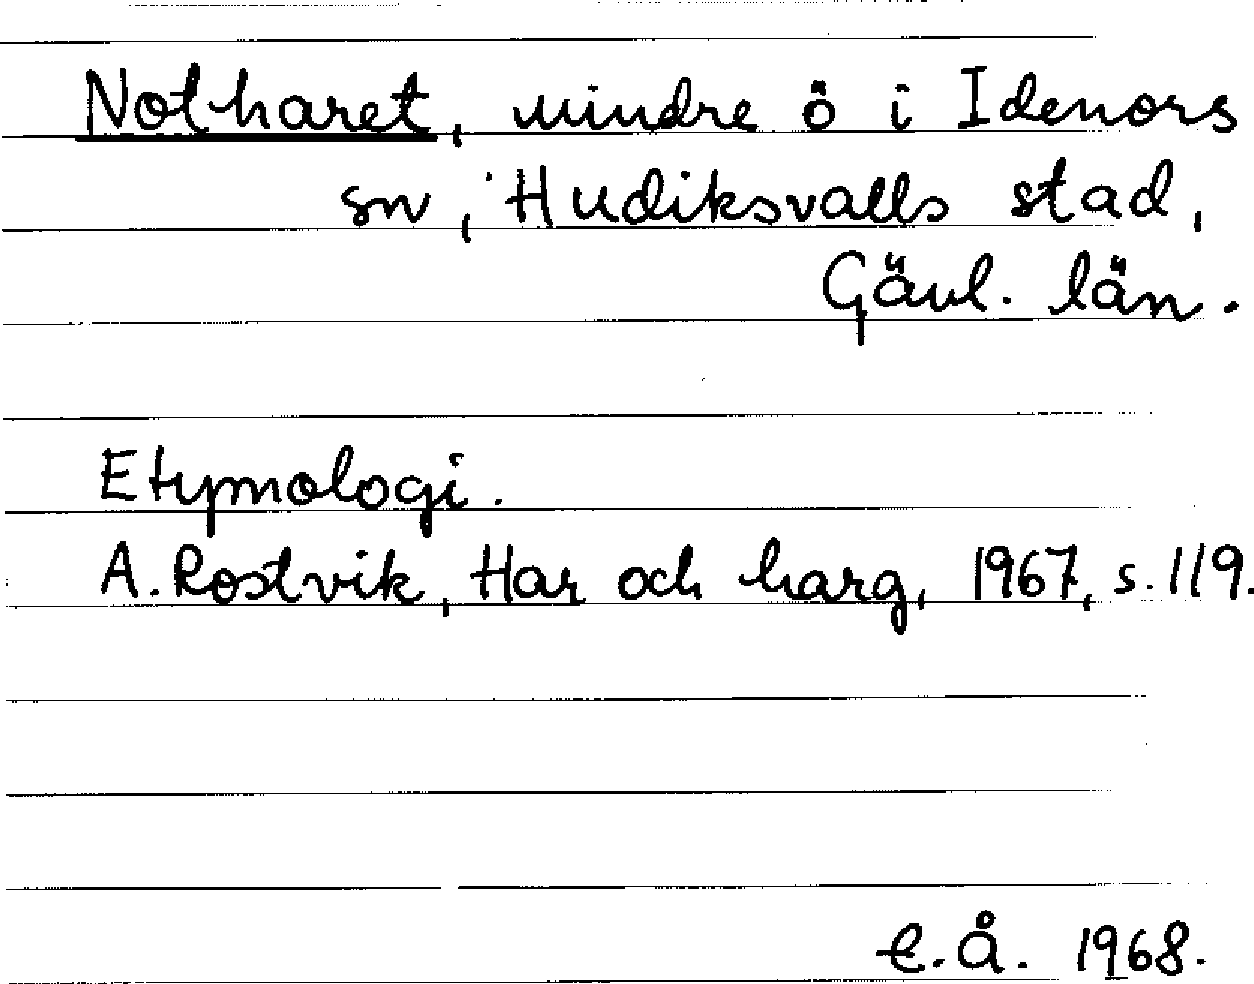 Notharet, mindre ö i Idenors
sn, Hudiksvalls stad,
Gävl. län.
Etymologi.
A. Rostvik, Har och harg, 1967, s. 119.
C.Å. 1968.